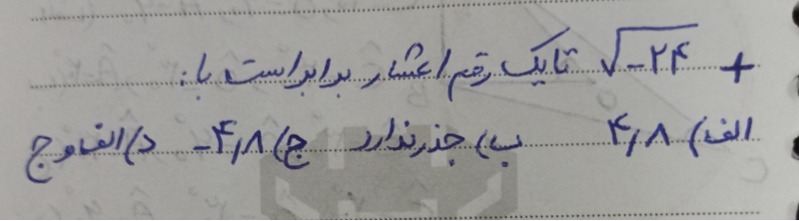 + √-۲۴ تا یک رقم اعشار برابر است با:
الف) ۴٫۸ ب) جذر ندارد ج) ۴٫۸- د) الف و ج